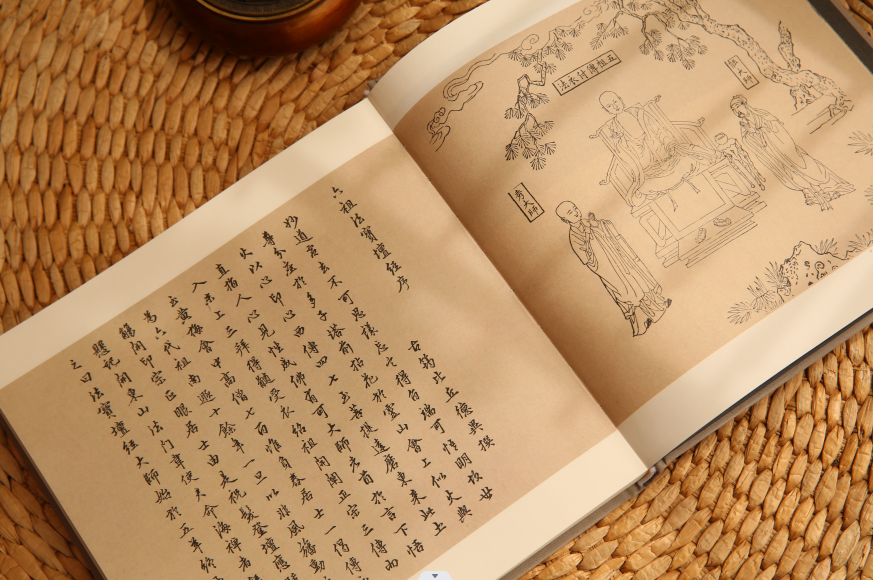 六祖法寶壇經序
古筠比丘德異撰
妙道虛玄不可思議忘言得旨端可悟明故世
尊分座於多子塔前拈花於靈山會上似火與
火以心印心西傳四七至菩提達磨東來此土
直指人心見性成佛有可大師者首於言下悟
入末上三拜得髓受衣紹祖開闡正宗三傳而
至黃梅會中高僧七百惟負舂居士一偈傳
為六代祖南遯十餘年一旦以非風旛動
觸開印宗正眼居士由是祝髮登壇應
懸記開東山法門韋使君命海禪者
之曰法寶壇經大師始於五羊終
五祖傳付衣法
能大師
秀大師